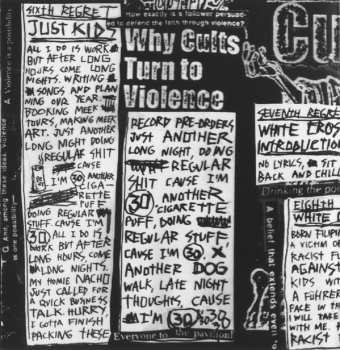 SIXTH REGRET
JUST KIDZ
ALL I DO IS WORK
BUT AFTER LONG
HOURS COME LONG
NIGHTS. WRITING
SONGS AND PLAN
NING OUR YEAR.
BOOKING MEEK
TOURS, MAKING MEEK
ART. JUST ANOTHER
LONG NIGHT DOING
REGULAR SHIT
CAUSE
I'M 30 ANOTHER
CIGA-
RETTE
PUFF
DOING REGULAR
STUFF. CAUSE I'M
30 ALL I DO IS
WORK BUT AFTER
LONG HOURS, COME
LONG NIGHTS.
MY HOMIE NACHO
JUST CALLED FOR
A QUICK BUSINESS
TALK. HURRY
I GOTTA FINISH
PACKING THESE
A. Violence is a possibility
Q. And, among these ideas, violence
is one possibility
How exactly is a follower persuad-
ed to defend the faith through violence?
Why Cults
Turn to
Violence
RECORD PRE-ORDERS
JUST ANOTHER
LONG NIGHT, DOING
REGULAR
SHIT CAUSE I'M
30 ANOTHER
CIGARETTE
PUFF, DOING
REGULAR STUFF
CAUSE I'M 30, X,
ANOTHER DOG
WALK, LATE NIGHT
THOUGHTS, CAUSE
I'M 30 X 30
Everyone to the pavilion!
CU
SEVENTH REGRE
WHITE EROS
INTRODUCTION
NO LYRICS, SIT
BACK AND CHILL
Drinking the po
A belief that extends even
EIGHTH
WHITE
BORN FILIPIN
A VICTIM OF
RACIST F
AGAINST
KIDS WIT
A FÜHRER
FACE IN TH
WILL TAKE
WITH ME.
RACIST